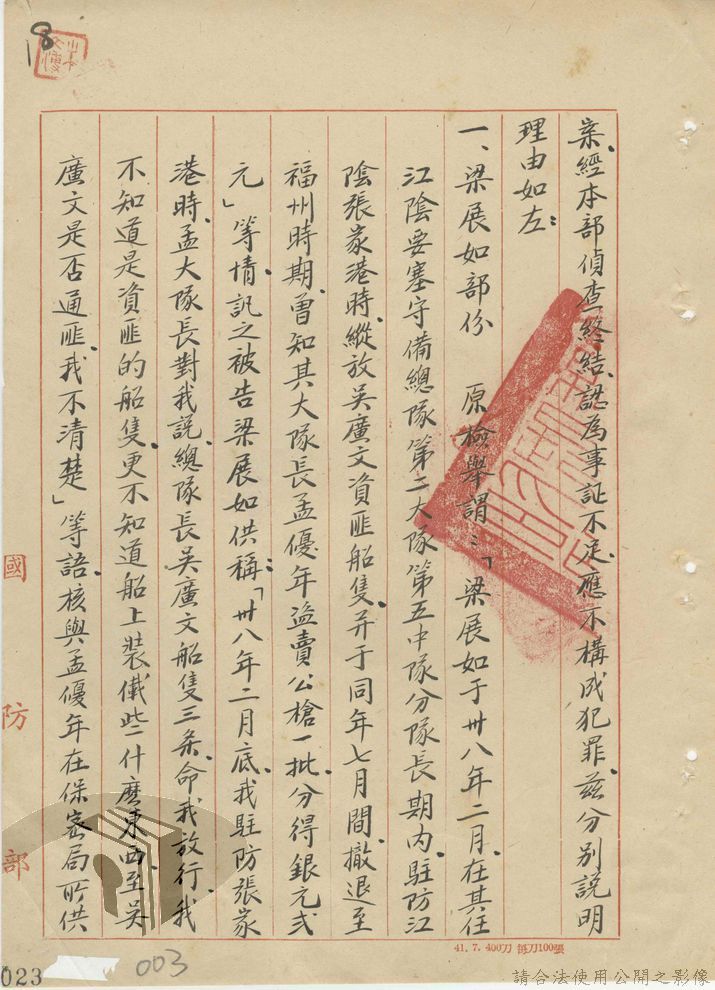 18
案經本部偵查終結認為事証不足應不構成犯罪茲分別說明
理由如左：
一、梁展如部份　原檢舉謂：「梁展如于卅八年二月在其任
江陰要塞守備總隊第二大隊第五中隊分隊長期內駐防江
陰張家港時縱放吳廣文資匪船隻并于同年七月間撤退至
福州時期曾知其大隊長孟優年盗賣公槍一批分得銀元弍
元」等情訊之被告梁展如供稱：「卅八年二月底我駐防張家
港時孟大隊長對我說總隊長吳廣文船隻三条命我放行我
不知道是資匪的船隻更不知道船上裝儎些什麽東西至吳
廣文是否通匪我不清楚」等語核與孟優年在保密局所供
國防部
41.7.400刀 每刀100張
023
003
請合法使用公開之影像